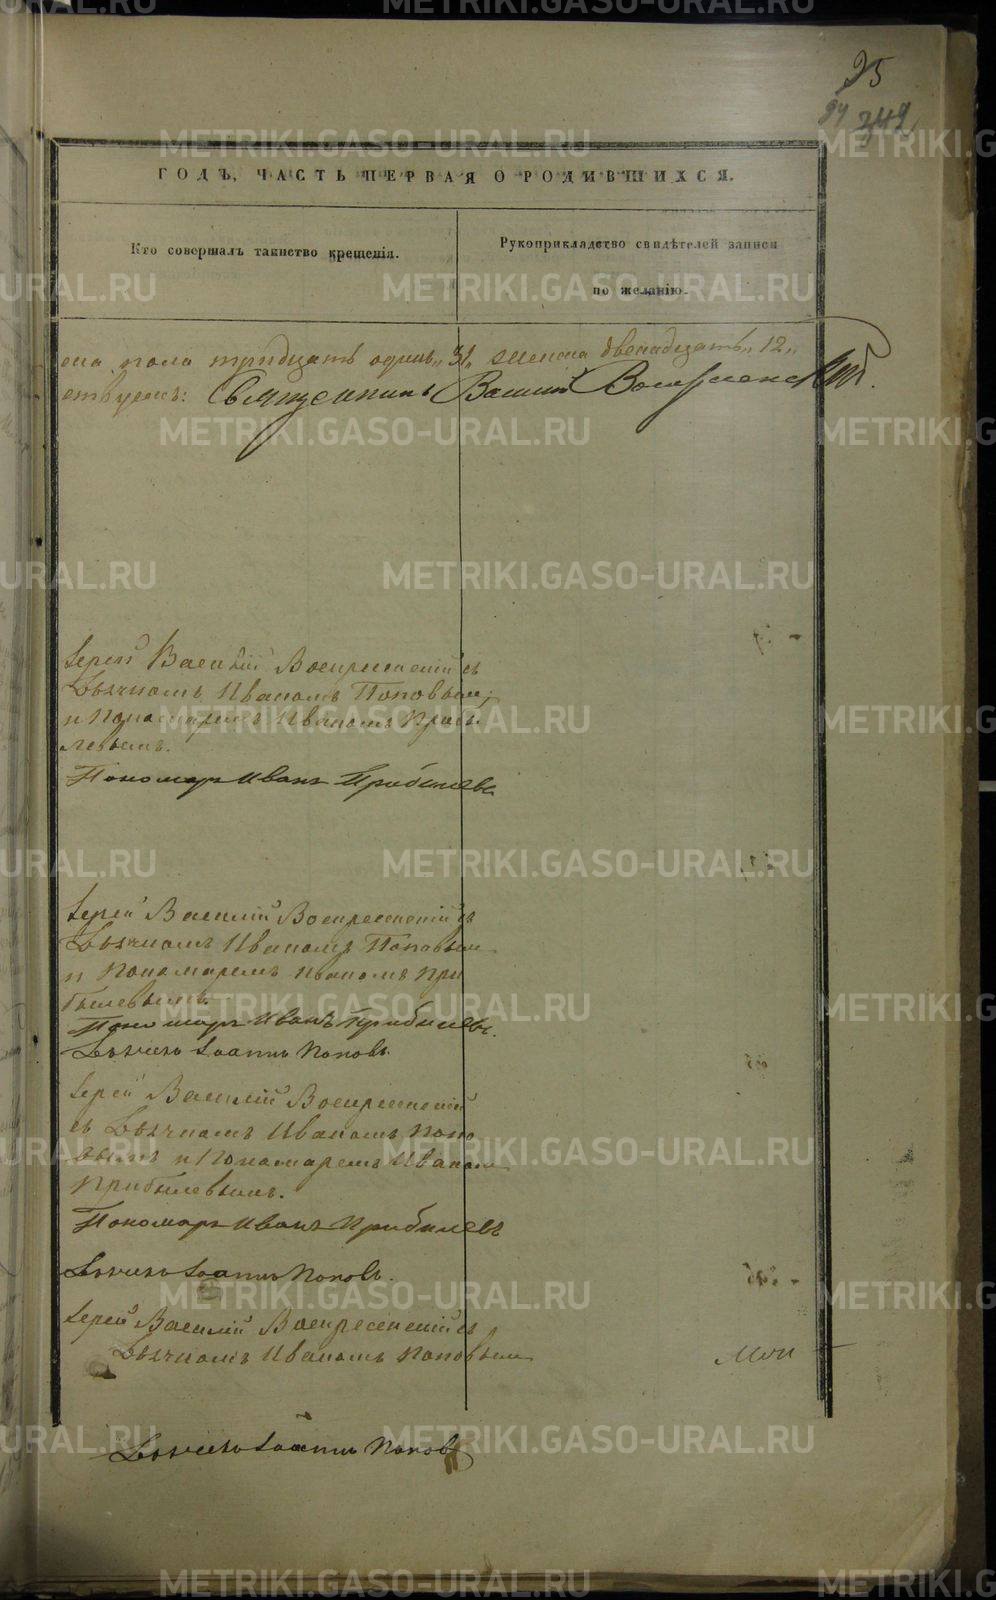 25
94 349
ГОДЪ, ЧАСТЬ ПЕРВАЯ О РОДИВШИХСЯ.
Кто совершалъ таинство крещенія.
Рукоприкладство свидѣтелей записи
по желанію.
ска пола тридцать одинъ „31„ женска двенадцать „12„
ствуемъ: Священникъ Василій Воскресенскій.
Іерей Василій Воскресенскій съ
Дьячкомъ Иваномъ Поповымъ
и Пономаремъ Иваномъ Прибы
левымъ.
Пономарь Иванъ Прибылевъ
Іерей Василій Воскресенскій съ
Дьячкомъ Иваномъ Поповымъ
и Пономаремъ Иваномъ При
былевымъ.
Пономарь Иванъ Прибылевъ.
Дьячекъ Іоаннъ Поповъ
Іерей Василій Воскресенскій
съ Дьячкомъ Иваномъ Попо
вымъ и Пономаремъ Иваномъ
Прибылевымъ.
Пономарь Иванъ Прибылевъ
Дьячекъ Іоаннъ Поповъ.
Іерей Василій Воскресенскій съ
Дьячкомъ Иваномъ Поповымъ
Дьячекъ Іоаннъ Поповъ
METRIKI.GASO-URAL.RU